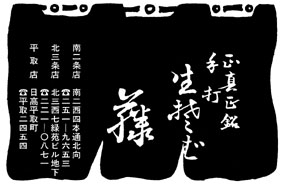 正真正銘
手打
生そば
藤
南二条店 南二西四本通北向
☎二五一―九六五三
北三条店 北三西七緑苑ビル地下
☎二二一―〇八七一
平取店 日高平取町
☎平取二四五四